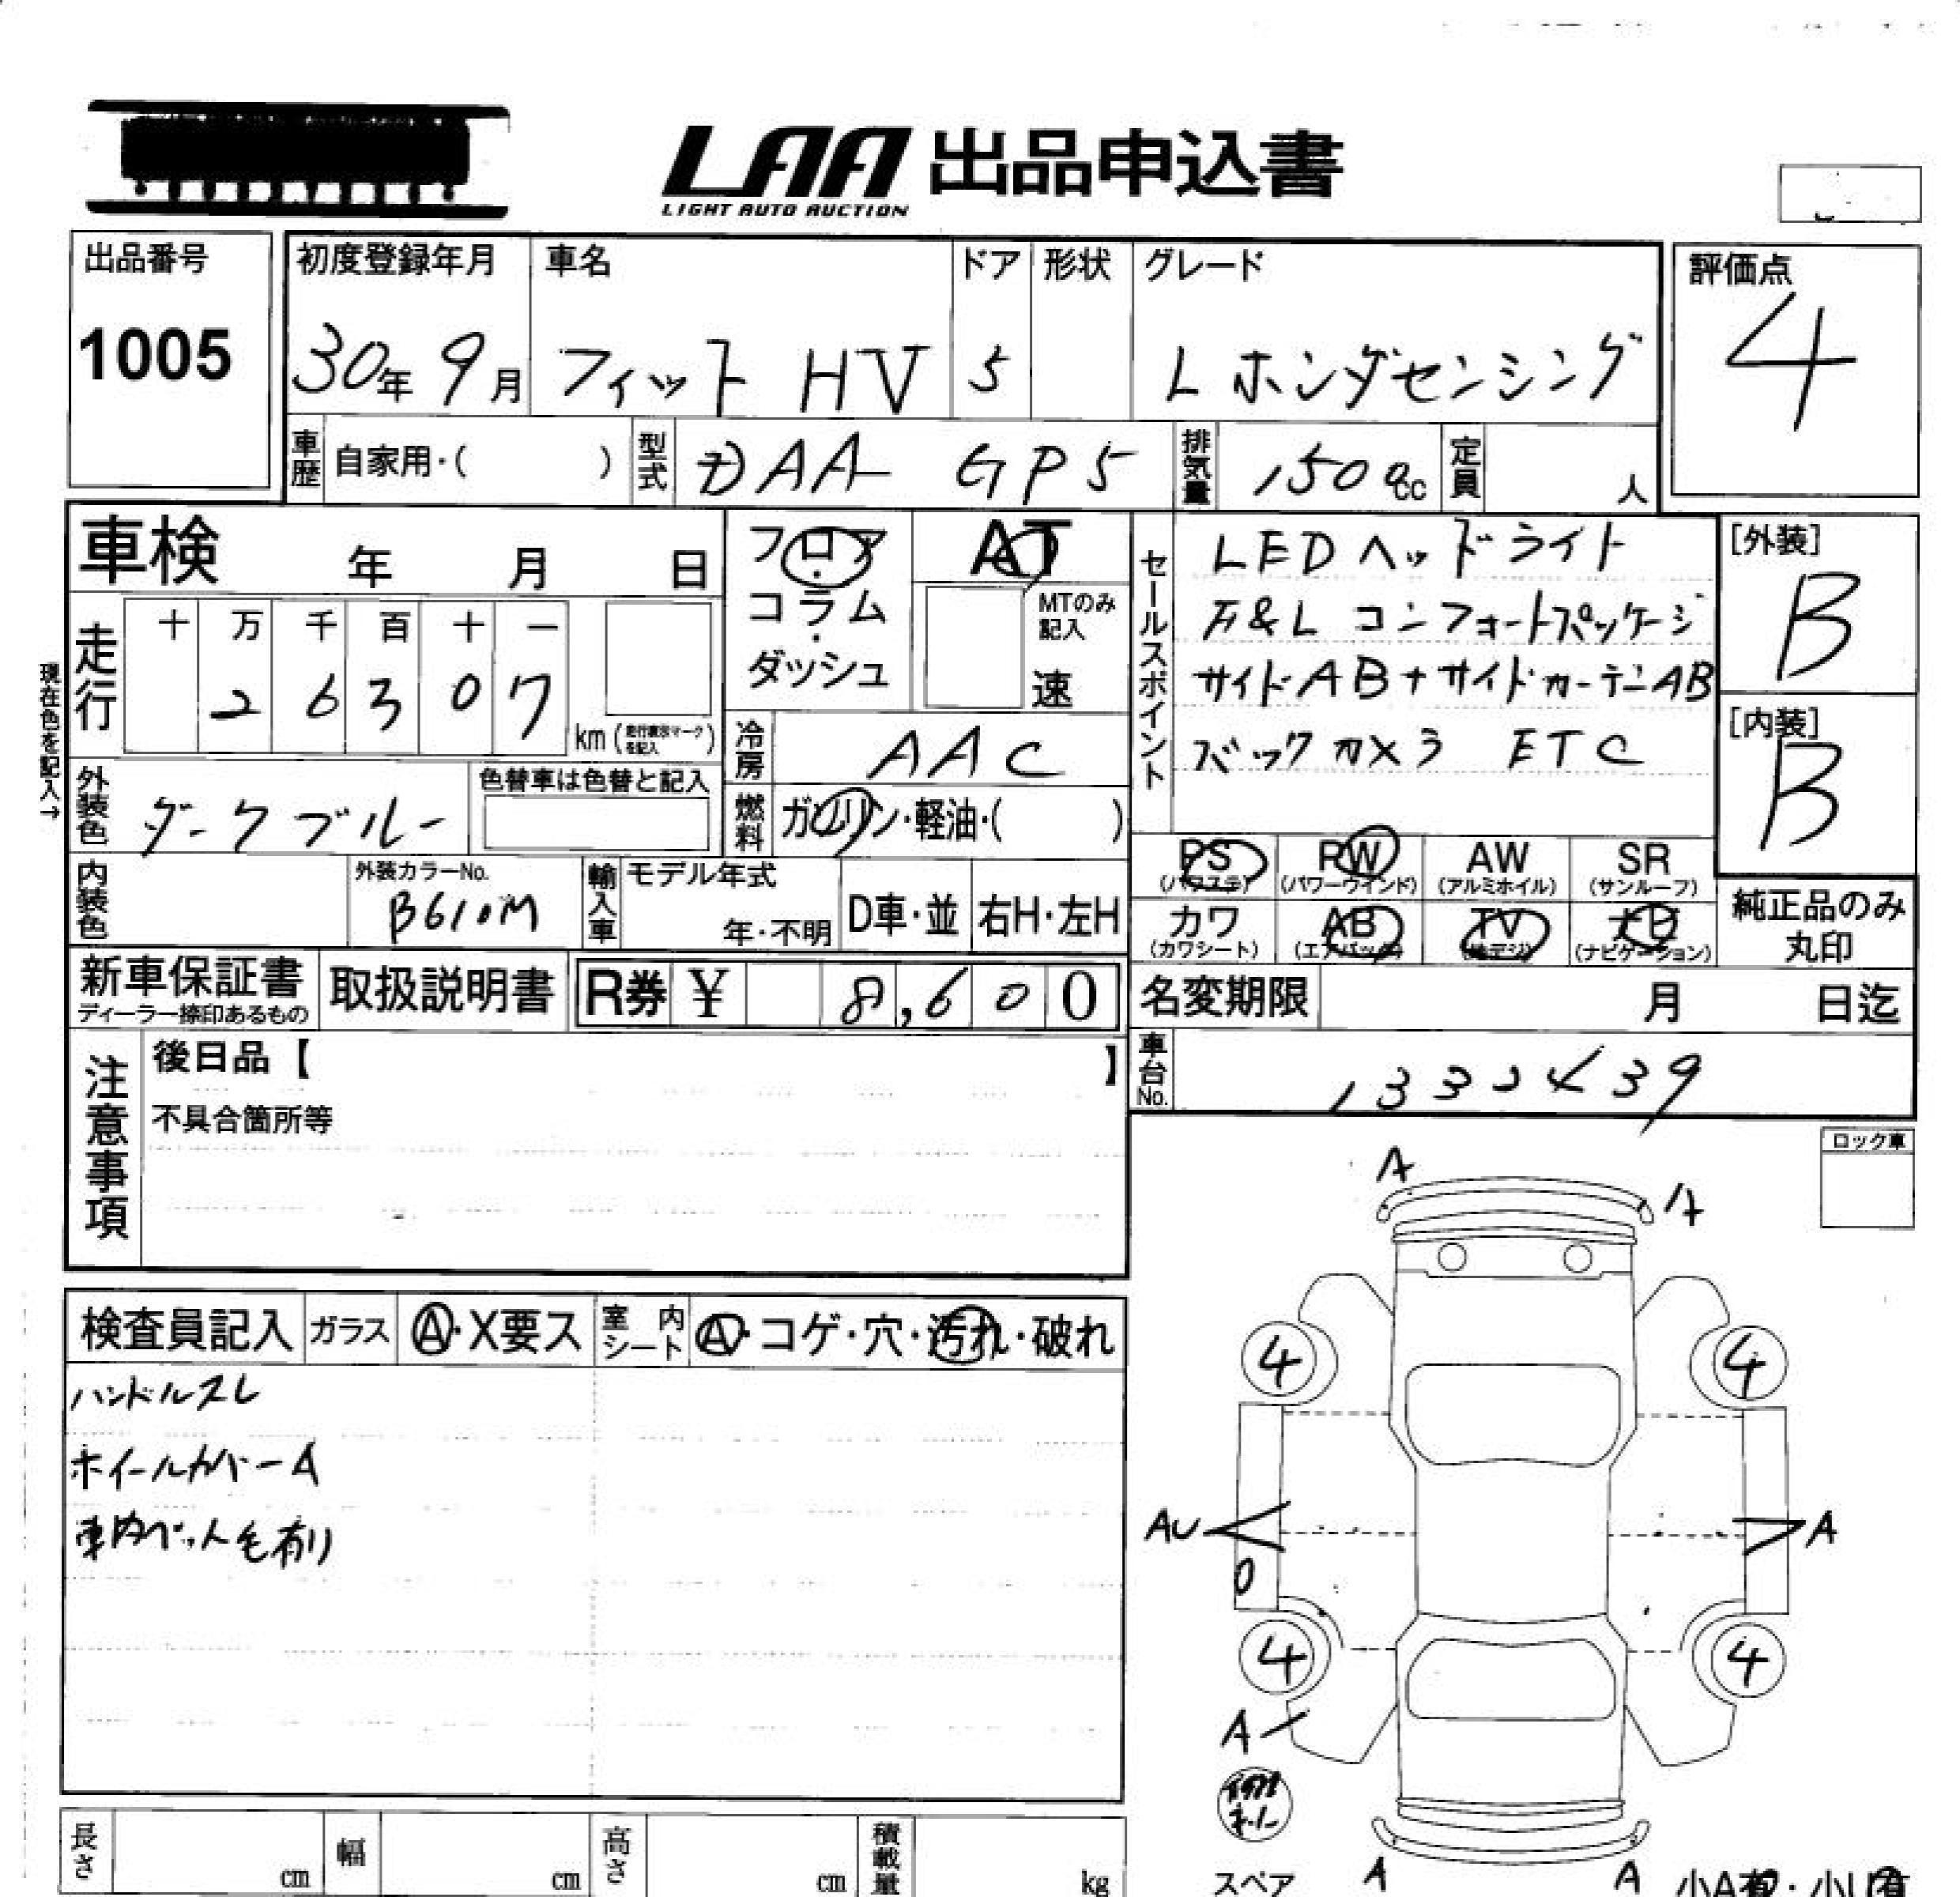 LAA 出品申込書
LIGHT AUTO AUCTION
出品番号
1005
初度登録年月
30年 9月
車名
フィット HV
ドア
5
形状
グレード
L ホンダセンシング
評価点
4
車歴
自家用・( )
型式
DAA GP5
排気量
1500cc
定員
人
車検 年 月 日
フロア・コラム・ダッシュ
AT
MTのみ記入
速
セールスポイント
LEDヘッドライト
F&L コンフォートパッケージ
サイドAB+サイドカーテンAB
バックカメラ ETC
[外装]
B
[内装]
B
現在色を記入→
走行
十 万 千 百 十 一
2 6 3 0 7
km (走行表示マークを記入)
冷房
AAC
外装色
ダークブルー
色替車は色替と記入
燃料
ガソリン・軽油・( )
内装色
外装カラーNo.
B610M
輸入車
モデル年式
年・不明
D車・並
右H・左H
PS
(パワステ)
PW
(パワーウインド)
AW
(アルミホイル)
SR
(サンルーフ)
カワ
(カワシート)
AB
(エアバック)
TV
(地デジ)
ナビ
(ナビゲーション)
純正品のみ
丸印
新車保証書
ディーラー捺印あるもの
取扱説明書
R券 ¥ 8,600
名変期限 月 日迄
注意事項
後日品【 】
不具合箇所等
車台No.
1332439
ロック車
検査員記入
ガラス
A・X要ス
室内シート
A・コゲ・穴・汚れ・破れ
ハンドルスレ
ホイールカバーA
車内ペット毛有り
A
A
4
4
AU
A
4
4
A
A
A
スペア
小A有・小U有
長さ
cm
幅
cm
高さ
cm
積載量
kg